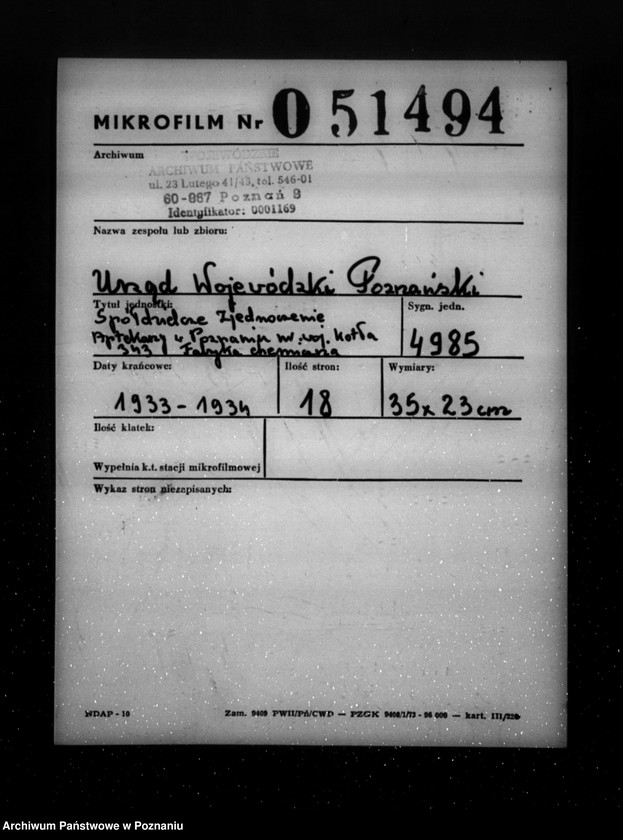 MIKROFILM Nr 051494
Archiwum
WOJEWÓDZKIE
ARCHIWUM PAŃSTWOWE
ul. 23 Lutego 41/43, tel. 546-01
60-967 Poznań 9
Identyfikator: 0001169
Nazwa zespołu lub zbioru:
Urząd Wojewódzki Poznański
Tytuł jednostki:
Sygn. jedn.
Spółdzielcze Zjednoczenie
Aptekarzy w Poznaniu nr. woj. kotła
343 Fabryka chemiczna
4985
Daty krańcowe:
Ilość stron:
Wymiary:
1933 - 1934
18
35x23 cm
Ilość klatek:
Wypełnia k.t. stacji mikrofilmowej
Wykaz stron niezapisanych:
NDAP - 10
Zam. 9409 PWII/Pń/CWD — PZGK 9409/1/73 - 96 000 — kart. III/220
Archiwum Państwowe w Poznaniu